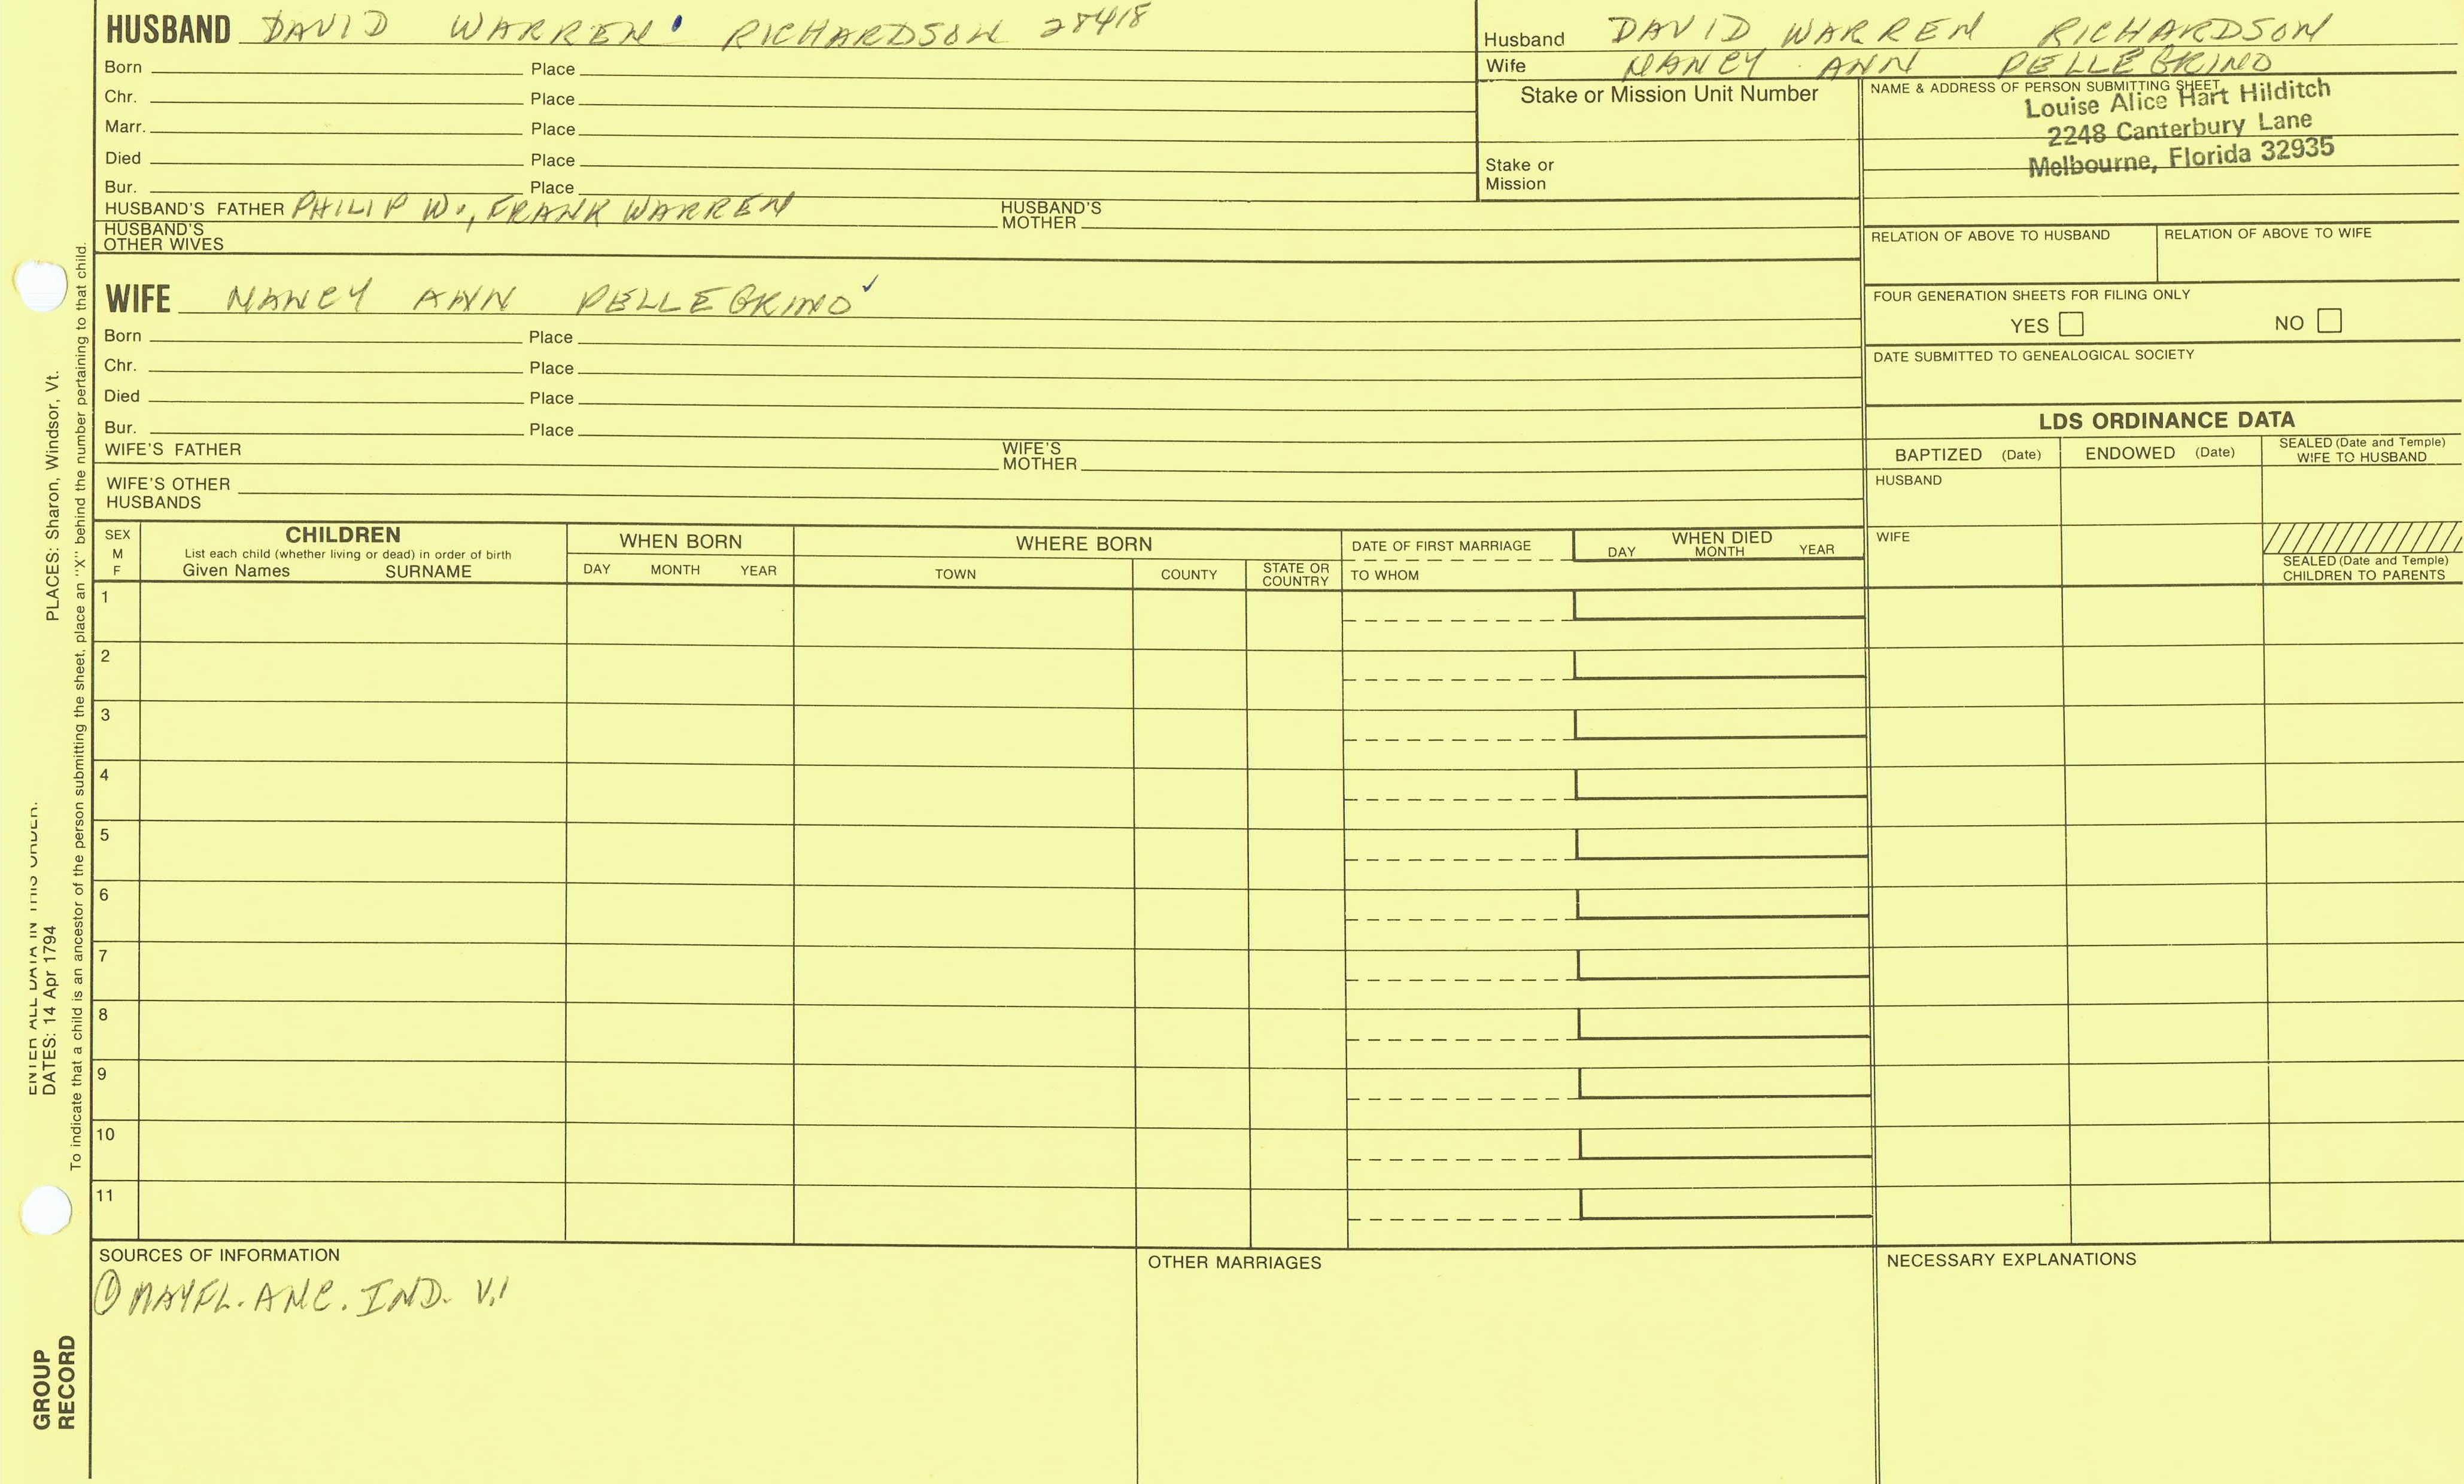 HUSBAND DAVID WARREN RICHARDSON 28418
Born Place
Chr. Place
Marr. Place
Died Place
Bur. Place
HUSBAND'S FATHER PHILIP W., FRANK WARREN HUSBAND'S MOTHER
HUSBAND'S OTHER WIVES
Husband DAVID WARREN RICHARDSON
Wife NANCY ANN PELLEGRINO
Stake or Mission Unit Number
Stake or
Mission
NAME & ADDRESS OF PERSON SUBMITTING SHEET
Louise Alice Hart Hilditch
2248 Canterbury Lane
Melbourne, Florida 32935
RELATION OF ABOVE TO HUSBAND RELATION OF ABOVE TO WIFE
WIFE NANCY ANN PELLEGRINO ✓
Born Place
Chr. Place
Died Place
Bur. Place
WIFE'S FATHER WIFE'S MOTHER
WIFE'S OTHER
HUSBANDS
FOUR GENERATION SHEETS FOR FILING ONLY
YES NO
DATE SUBMITTED TO GENEALOGICAL SOCIETY
LDS ORDINANCE DATA
BAPTIZED (Date) ENDOWED (Date) SEALED (Date and Temple) WIFE TO HUSBAND
HUSBAND
WIFE
SEALED (Date and Temple)
CHILDREN TO PARENTS
SEX M F
CHILDREN
List each child (whether living or dead) in order of birth
Given Names SURNAME
WHEN BORN
DAY MONTH YEAR
WHERE BORN
TOWN COUNTY STATE OR COUNTRY
DATE OF FIRST MARRIAGE
TO WHOM
WHEN DIED
DAY MONTH YEAR
1
2
3
4
5
6
7
8
9
10
11
SOURCES OF INFORMATION
① MAYFL. ANC. IND. V.1
OTHER MARRIAGES
NECESSARY EXPLANATIONS
ENTER ALL DATA IN THIS ORDER.
DATES: 14 Apr 1794 PLACES: Sharon, Windsor, Vt.
To indicate that a child is an ancestor of the person submitting the sheet, place an "X" behind the number pertaining to that child.
GROUP
RECORD